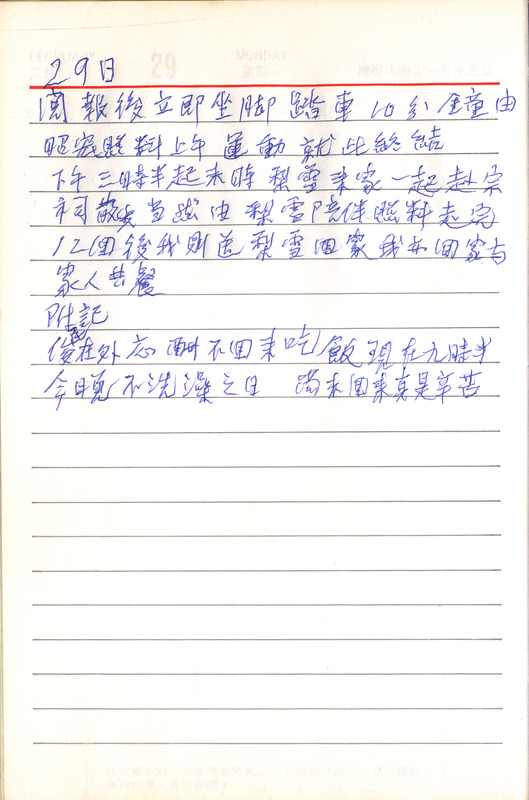 29日
閱報後立即坐脚踏車10分鐘童由
昭宏照料上午運動就此終結
下午三時半起來時梨雪来家一起赴宗
祠散步当然由梨雪陪伴照料走完
12個後我則送梨雪回家我亦回家与
家人共餐
附記
俊在外应酬不回来吃飯現在九時半
今日晚不洗澡之日 尚未回来真是辛苦